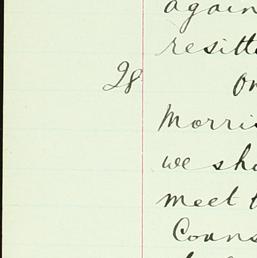 again
resitt
28 On
Morris
we sho
meet t
Couns